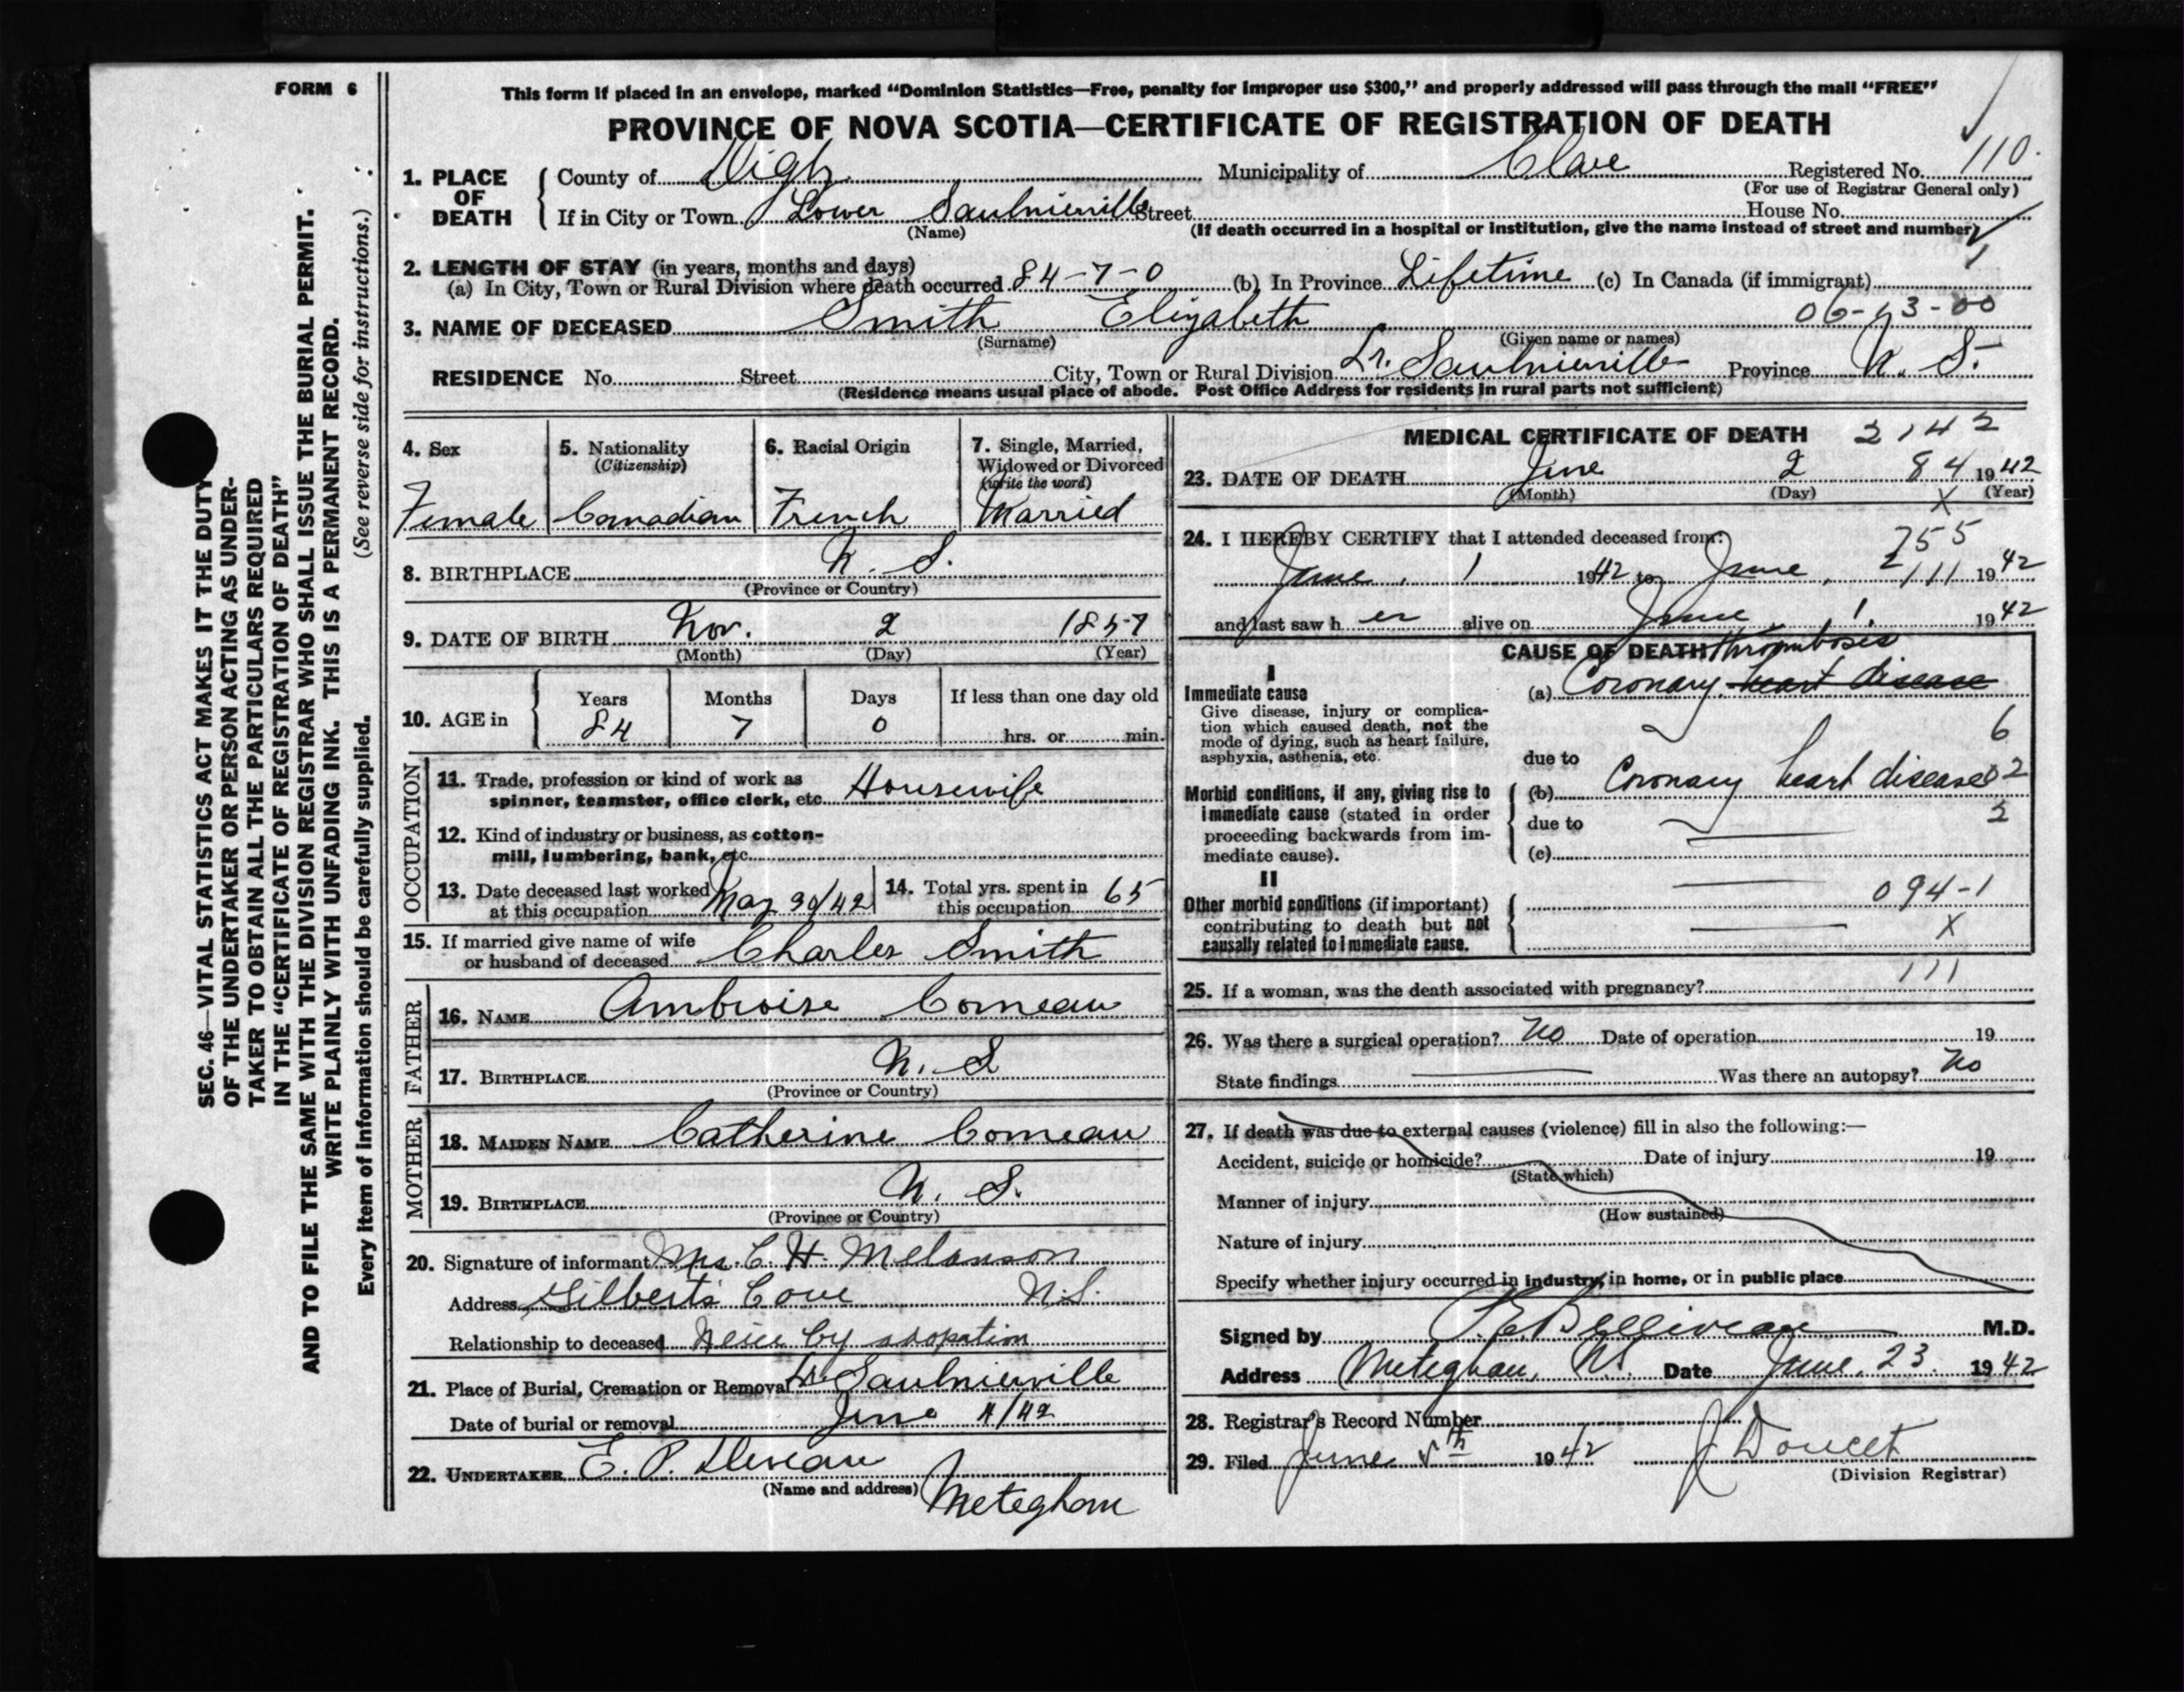 FORM 6
This form if placed in an envelope, marked "Dominion Statistics—Free, penalty for improper use $300," and properly addressed will pass through the mail "FREE"
PROVINCE OF NOVA SCOTIA—CERTIFICATE OF REGISTRATION OF DEATH
SEC. 46—VITAL STATISTICS ACT MAKES IT THE DUTY
OF THE UNDERTAKER OR PERSON ACTING AS UNDER-
TAKER TO OBTAIN ALL THE PARTICULARS REQUIRED
IN THE "CERTIFICATE OF REGISTRATION OF DEATH"
AND TO FILE THE SAME WITH THE DIVISION REGISTRAR WHO SHALL ISSUE THE BURIAL PERMIT.
WRITE PLAINLY WITH UNFADING INK. THIS IS A PERMANENT RECORD.
Every item of information should be carefully supplied. (See reverse side for instructions.)
1. PLACE OF DEATH County of Digby Municipality of Clare Registered No. 110.
(For use of Registrar General only)
If in City or Town Lower Saulnierville Street House No.
(Name) (If death occurred in a hospital or institution, give the name instead of street and number)
2. LENGTH OF STAY (in years, months and days)
(a) In City, Town or Rural Division where death occurred 84-7-0 (b) In Province Lifetime (c) In Canada (if immigrant)
3. NAME OF DECEASED Smith Elizabeth 06-13-00
(Surname) (Given name or names)
RESIDENCE No. Street City, Town or Rural Division Lr. Saulnierville Province N. S.
(Residence means usual place of abode. Post Office Address for residents in rural parts not sufficient)
4. Sex Female
5. Nationality (Citizenship) Canadian
6. Racial Origin French
7. Single, Married, Widowed or Divorced (write the word) Married
8. BIRTHPLACE N. S.
(Province or Country)
9. DATE OF BIRTH Nov. 2 1857
(Month) (Day) (Year)
10. AGE in Years 84 Months 7 Days 0 If less than one day old hrs. or min.
OCCUPATION
11. Trade, profession or kind of work as
spinner, teamster, office clerk, etc. Housewife
12. Kind of industry or business, as cotton-
mill, lumbering, bank, etc.
13. Date deceased last worked
at this occupation May 30/42
14. Total yrs. spent in
this occupation 65
15. If married give name of wife
or husband of deceased Charles Smith
FATHER
16. NAME Ambroise Comeau
17. BIRTHPLACE N. S
(Province or Country)
MOTHER
18. MAIDEN NAME Catherine Comeau
19. BIRTHPLACE N. S.
(Province or Country)
20. Signature of informant Mrs. C. H. Melanson
Address Gilberts Cove N.S.
Relationship to deceased Neice by adopation
21. Place of Burial, Cremation or Removal Lr. Saulnierville
Date of burial or removal June 4/42
22. UNDERTAKER E. P. Deveau
(Name and address) Meteghan
MEDICAL CERTIFICATE OF DEATH 2142
23. DATE OF DEATH June 2 84 1942
(Month) (Day) X (Year)
24. I HEREBY CERTIFY that I attended deceased from: 255
June, 1 1942 to June, 2 111 1942
and last saw her alive on June, 1. 1942
CAUSE OF DEATH
I
Immediate cause
Give disease, injury or complica-
tion which caused death, not the
mode of dying, such as heart failure,
asphyxia, asthenia, etc.
thrombosis
(a) Coronary heart disease
6
due to
Morbid conditions, if any, giving rise to
immediate cause (stated in order
proceeding backwards from im-
mediate cause).
(b) Coronary heart disease 02
2
due to
(c)
II
Other morbid conditions (if important)
contributing to death but not
causally related to immediate cause.
094-1
X
111
25. If a woman, was the death associated with pregnancy?
26. Was there a surgical operation? No Date of operation 19
State findings Was there an autopsy? No
27. If death was due to external causes (violence) fill in also the following:—
Accident, suicide or homicide? Date of injury 19
(State which)
Manner of injury
(How sustained)
Nature of injury
Specify whether injury occurred in industry, in home, or in public place
Signed by Belliveau M.D.
Address Meteghan, N.S. Date June, 23. 1942
28. Registrar's Record Number
29. Filed June 1942 J Doucet
(Division Registrar)